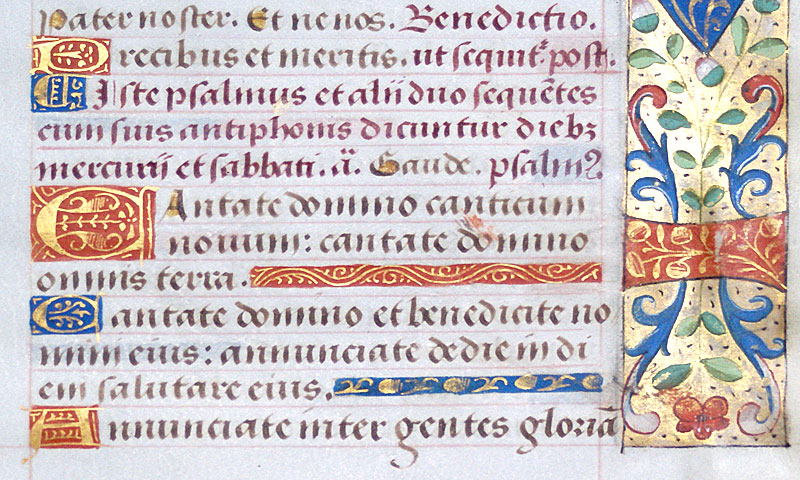 Pater noster. Et ne nos. Benedictio.
Precibus et meritis. ut sequitr post.
Iste psalmus et alii duo sequētes
cum suis antiphonis dicuntur diebz
mercurii et sabbati. ā. Gaude. psalmꝰ.
CAntate domino canticum
novum: cantate domino
omnis terra.
Cantate domino et benedicite no
mini eius: annunciate de die in di
em salutare eius.
Annunciate inter gentes gloriā